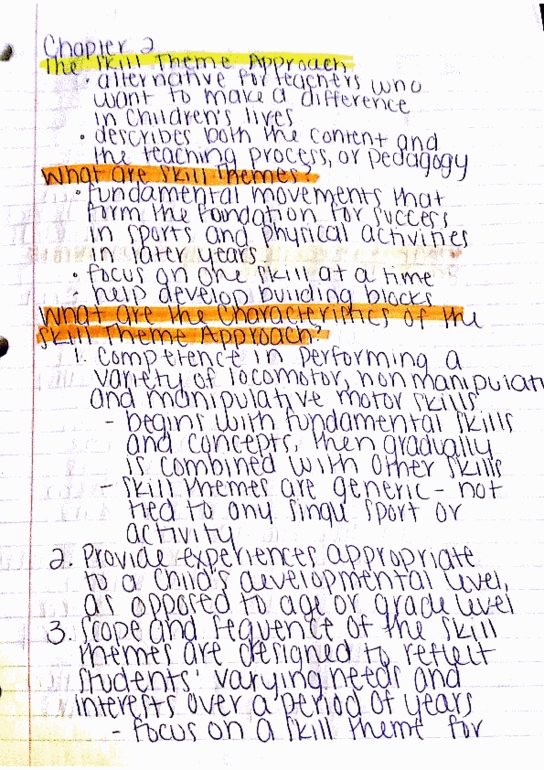 Chapter 2
The Skill Theme Approach
· alternative for teachers who
want to make a difference
in children's lives
· describes both the content and
the teaching process, or pedagogy
What are Skill Themes?
· fundamental movements that
form the foundation for success
in sports and physical activities
in later years
· focus on one skill at a time
- help develop building blocks
What are the Characteristics of the
Skill Theme Approach?
1. Competence in performing a
variety of locomotor, nonmanipulati
and manipulative motor skills
- begins with fundamental skills
and concepts, then gradually
is combined with other skills
- skill themes are generic - not
tied to any singu sport or
activity
2. Provide experiences appropriate
to a child's developmental level,
as opposed to age or grade level
3. Scope and sequence of the skill
themes are designed to reflect
students' varying needs and
interests over a period of years
- focus on a skill theme for